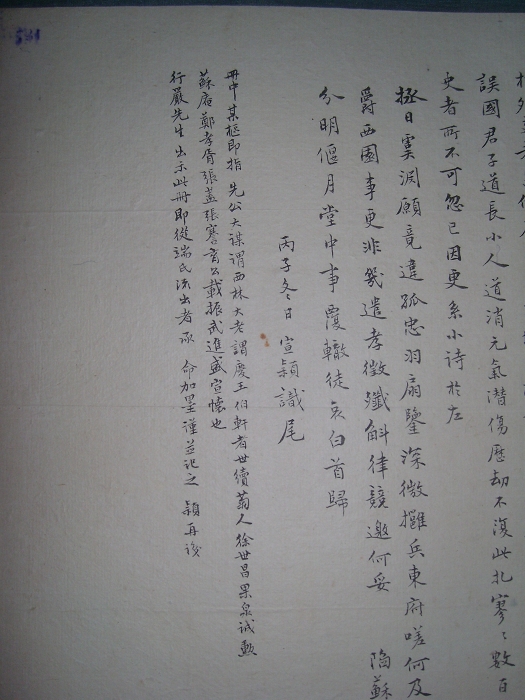 誤國君子道長小人道消元氣潛傷歷劫不復此扎寥々數百
史者所不可忽已因更系小詩於左
拯日虞淵願竟違孤忠羽扇鑒深微擁兵東府嗟何及
爵西園事更非幾遣孝徵殲斛律競邀何妥 陷蘇
分明偃月堂中事覆轍徒哀白首歸
丙子冬日宣穎識尾
冊中某樞即指 先公大謀謂西林大老謂慶王伯軒者世續菊人徐世昌果泉誠勳
蘇店鄭孝胥張蓋張謇育公載振武進盛宣懷也
行嚴先生出示此冊即從端氏流出者承 命加墨謹並記之 穎再識
561